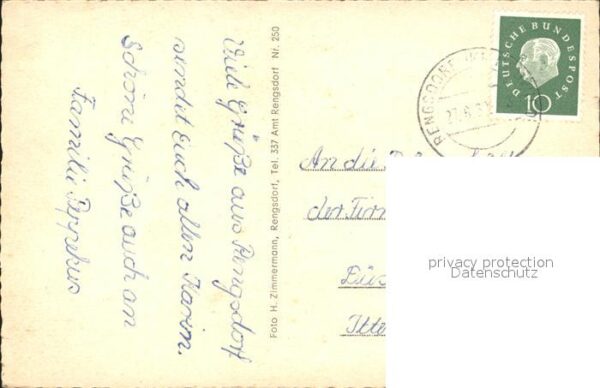 Viele Grüße aus Rengsdorf
sendet Euch allen Karin.
Schöne Grüße auch an
Familie
Foto H. Zimmermann, Rengsdorf, Tel. 337 Amt Rengsdorf Nr. 250
DEUTSCHE BUNDESPOST
10
RENGSDORF
An die
der Firm
privacy protection
Datenschutz